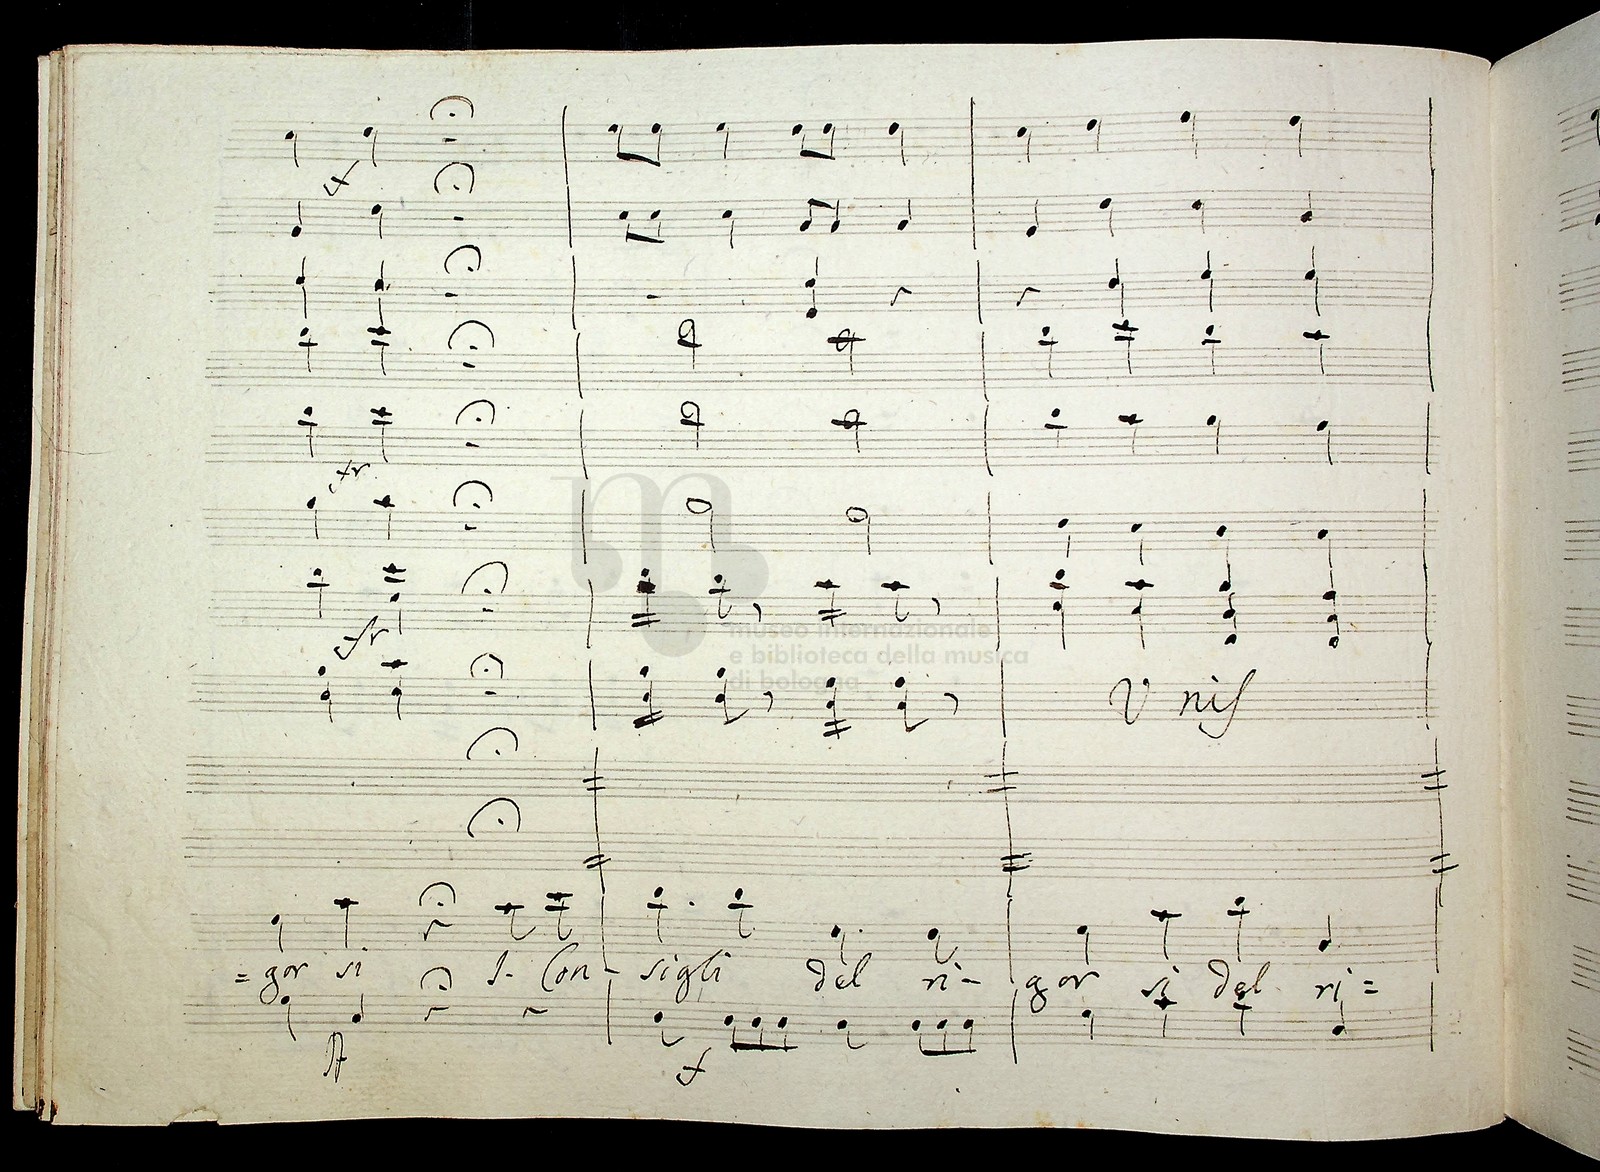 f
fr
fr
museo internazionale
e biblioteca della musica
di bologna
Unis
=gor si I- Con- sigli del ri- gor si del ri=
f